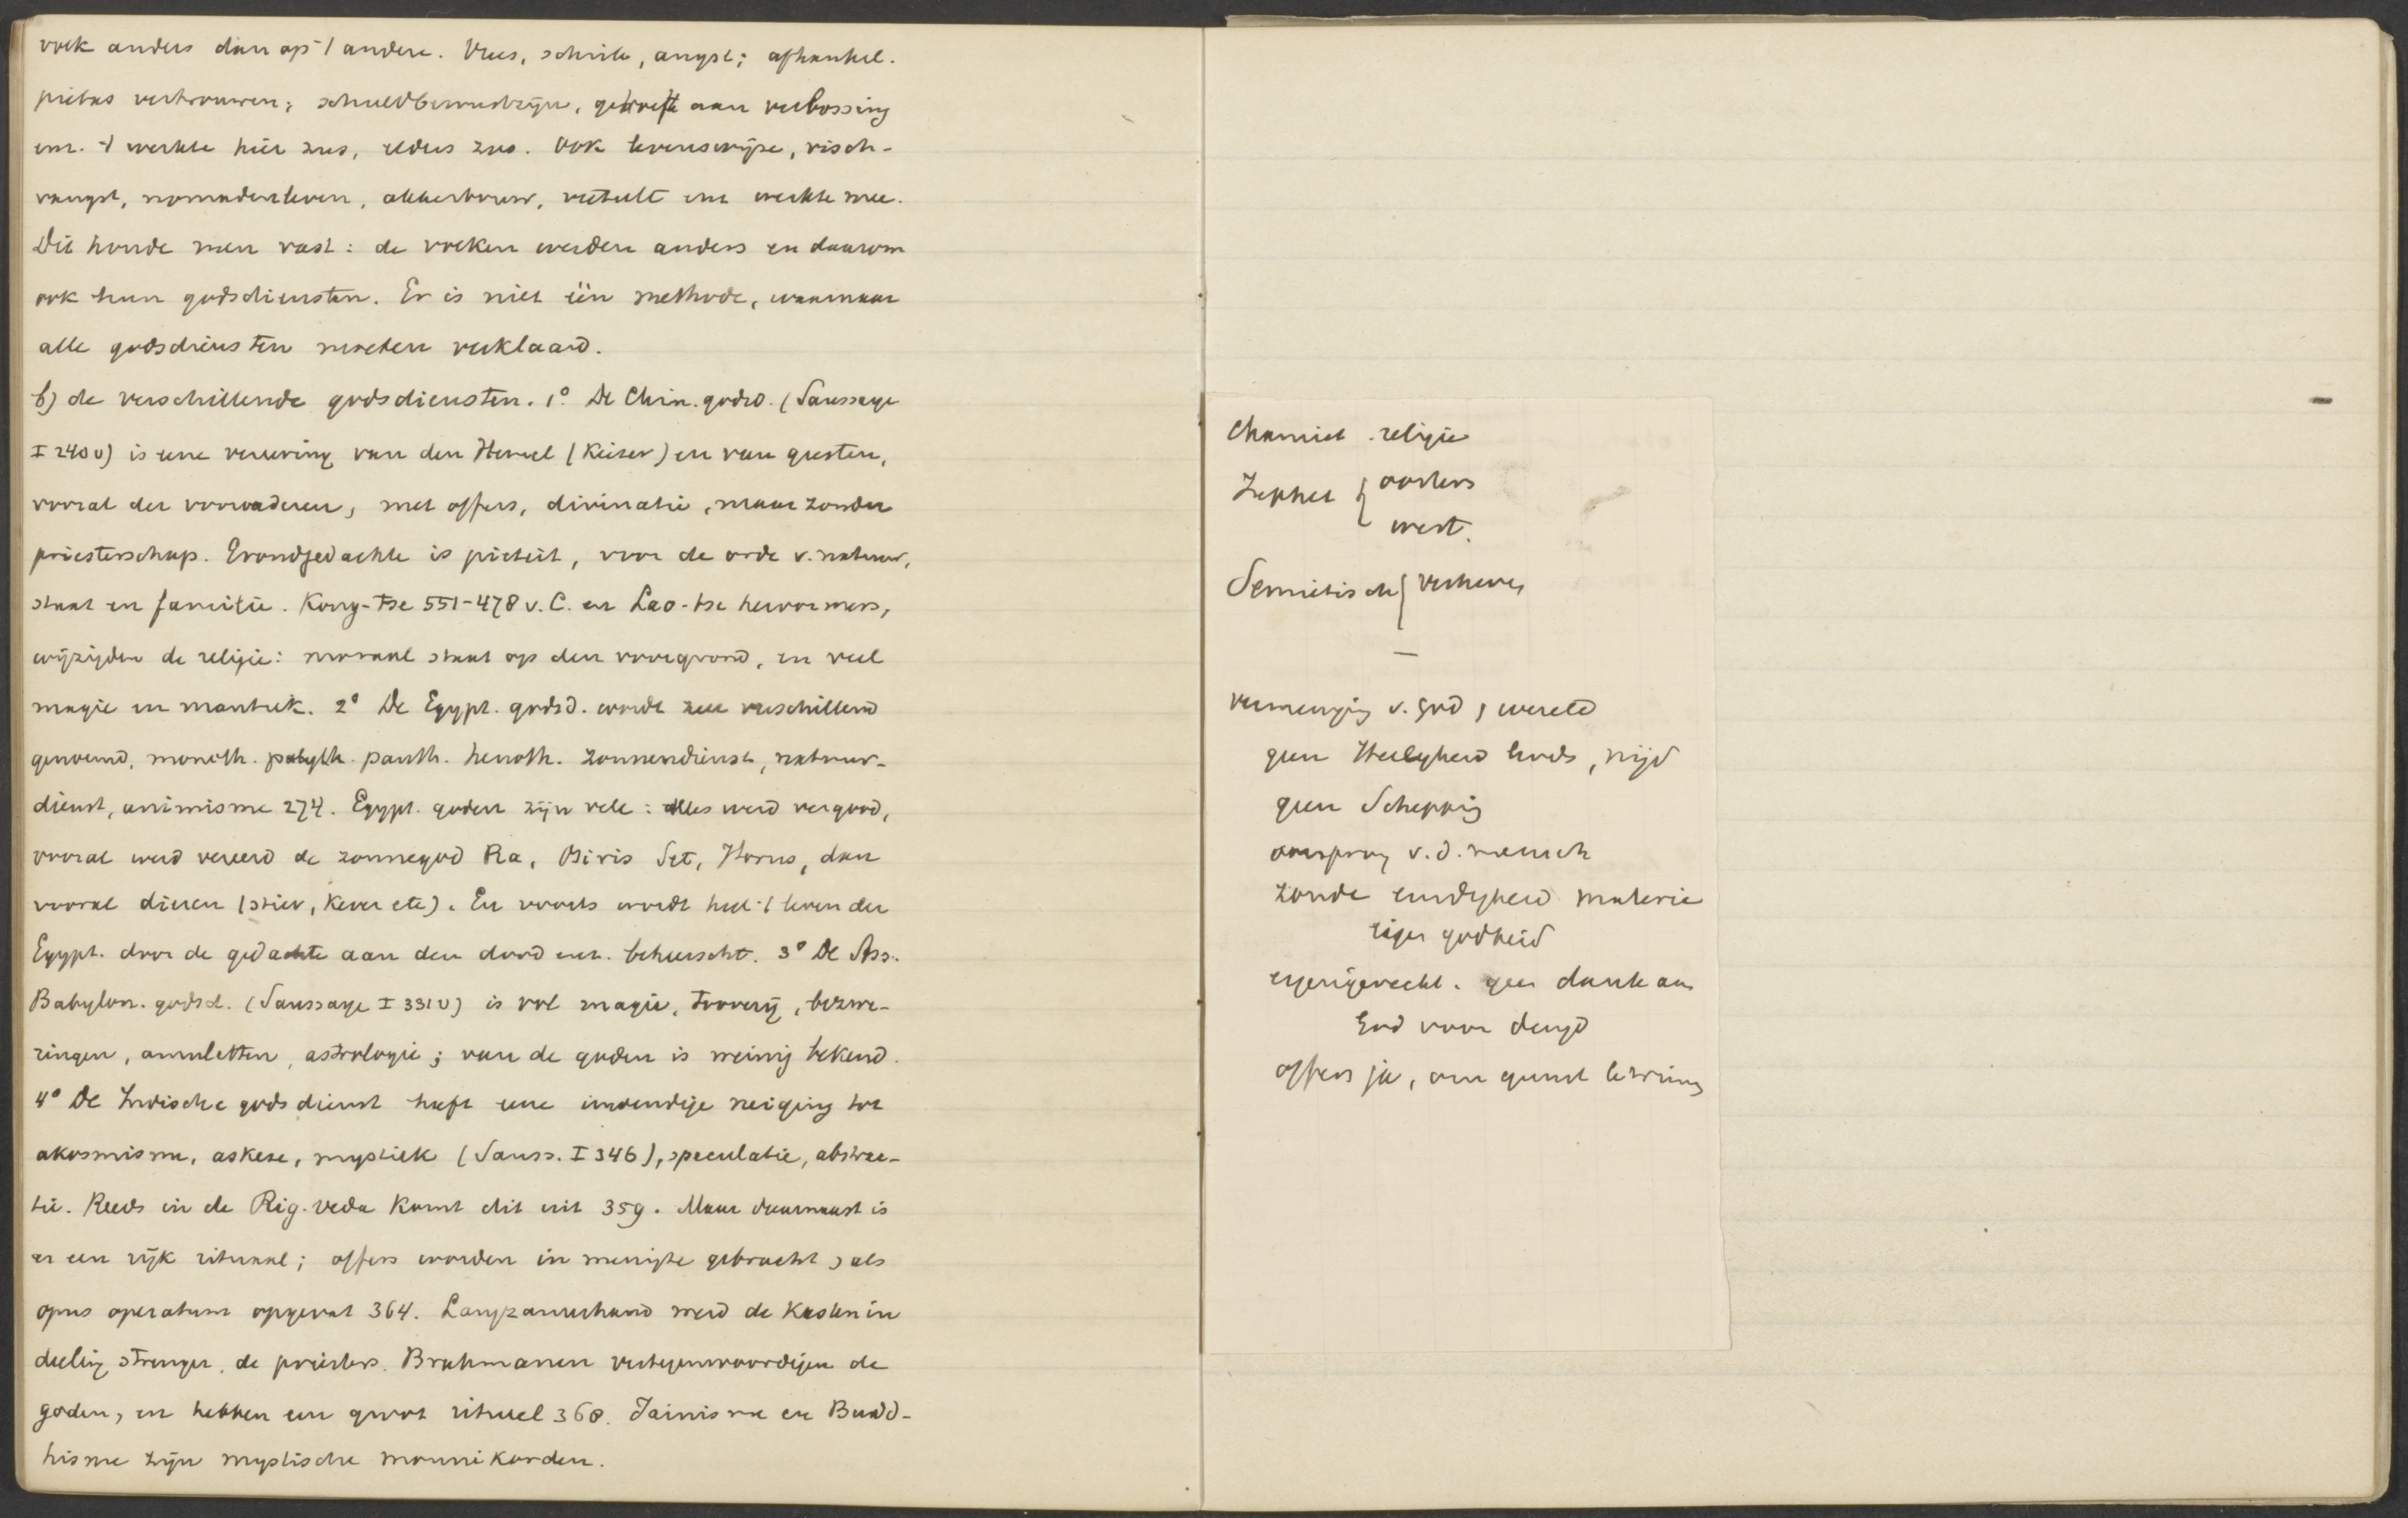 volk anders dan op 't andere. Vrees, schrik, angst; afhankel.
pietas vertrouwen; schuldbewustzijn, behoefte aan verlossing
enz. 't werkte hier zus, elders zoo. Ook levenswijze, visch-
vangst, nomadenleven, akkerbouw, veeteelt enz werkte mee.
Dit houde men vast: de volken werden anders en daarom
ook hun godsdiensten. Er is niet één methode, waarnaar
alle godsdiensten moeten verklaard.
b) de verschillende godsdiensten. 1° De Chin. godsd. (Saussaye
I 240v) is eene vereering van den Hemel (Keizer) en van geesten,
vooral der voorvaderen, met offers, divinatie, maar zonder
priesterschap. Grondgedachte is piëteit, voor de orde v. natuur,
staat en familie. Kong-tse 551-478 v. C. en Lao-tse hervormers,
wijzigden de religie: moraal staat op den voorgrond, en veel
magie en mantiek. 2° De Egypt. godsd. wordt zeer verschillend
genoemd, monoth. polyth. panth. henoth. zonnendienst, natuur-
dienst, animisme 274. Egypt. goden zijn vele: alles werd vergood,
vooral werd vereerd de zonnegod Ra, Osiris Set, Horus, dan
vooral dieren (stier, kever etc). En voorts wordt heel 't leven der
Egypt. door de gedachte aan den dood enz. beheerscht. 3° De Ass.
Babylon. godsd. (Saussaye I 331v) is vol magie, tooverij, bezwe-
ringen, amuletten, astrologie; van de goden is weinig bekend.
4° De Indische godsdienst heeft eene inwendige neiging tot
akosmisme, askese, mystiek (Sauss. I 346), speculatie, abstrac-
tie. Reeds in de Rig-veda komt dit uit 359. Maar daarnaast is
er een rijk rituaal; offers worden in menigte gebracht, als
opus operatum opgevat 364. Langzamerhand werd de kastenin
deeling strenger, de priesters Brahmanen vertegenwoordigen de
goden, en hebben een groot ritueel 368. Jainisme en Budd-
hisme zijn mystische monnikorden.
Chamiet. religie
Japhet { oosters
west.
Semietisch {
—
vermenging v. God, wereld
geen Heiligheid Gods, nijd
geen Schepping
oorsprong v. d. mensch
zonde eindigheid materie
eigen godheid
eigengerecht. geen dank aan
God voor deugd
offers ja, om gunst